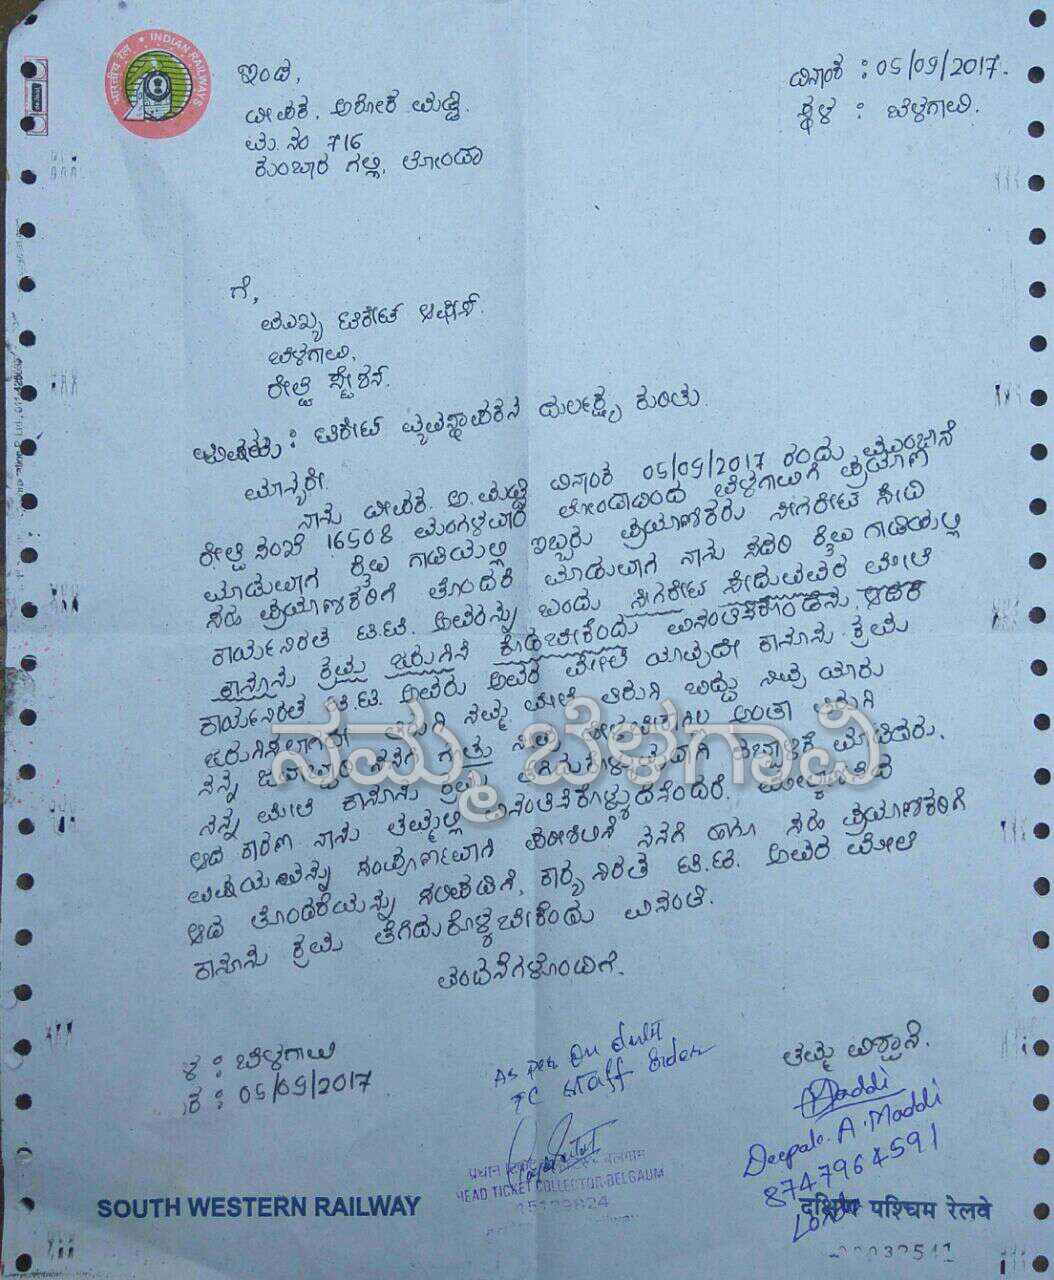 भारतीय रेल • INDIAN RAILWAYS
ಇಂದ,
ದಿನಾಂಕ : 05/09/2017.
ದೀಪಕ. ಅಶೋಕ. ಮಡ್ಡಿ
ಸ್ಥಳ : ಬೆಳಗಾವಿ.
ಮ. ನಂ 716
ಕುಂಬಾರ ಗಲ್ಲಿ, ಲೋಂಡಾ
ಗೆ,
ಮುಖ್ಯ ಟಿಕೇಟ್ ಆಫೀಸ್.
ಬೆಳಗಾವಿ,
ರೇಲ್ವೆ ಸ್ಟೇಶನ್.
ವಿಷಯ : ಟಿಕೇಟ್ ವ್ಯವಸ್ಥಾಪಕನ ದುರ್ಲಕ್ಷ್ಯ ಕುರಿತು.
ಮಾನ್ಯರೇ
ನಾನು ದೀಪಕ. ಅ. ಮಡ್ಡಿ ದಿನಾಂಕ 05/09/2017 ರಂದು ಮುಂಜಾನೆ
ರೇಲ್ವೆ ಸಂಖೆ 16508 ಮಂಗಳವಾರ ಲೋಂಡಾದಿಂದ ಬೆಳಗಾವಿಗೆ ಪ್ರಯಾಣ
ಮಾಡುವಾಗ ರೈಲು ಗಾಡಿಯಲ್ಲಿ ಇಬ್ಬರು ಪ್ರಯಾಣಿಕರು ಸಿಗರೇಟ ಸೇದಿ
ಸಹ ಪ್ರಯಾಣಿಕರಿಗೆ ತೊಂದರೆ ಮಾಡುವಾಗ ನಾನು ಸದರಿ ರೈಲು ಗಾಡಿಯಲ್ಲಿ
ಕಾರ್ಯನಿರತ ಟಿ.ಟಿ. ಅವರನ್ನು ಬಂದು ಸಿಗರೇಟ ಸೇದುವವರ ಮೇಲೆ
ಕಾನೂನು ಕ್ರಮ ಜರುಗಿಸಿ ಕೊಡಬೇಕೆಂದು ವಿನಂತಿಸಿಕೊಂಡೆನು. ಆದರೆ
ಕಾರ್ಯನಿರತ ಟಿ.ಟಿ. ಅವರು ಅವರ ಮೇಲೆ ಯಾವುದೇ ಕಾನೂನು ಕ್ರಮ
ನನ್ನ ಮೇಲೆ ತಿರುಗಿ ಬಿದ್ದು ನೀವು ಯಾರು
ನಮ್ಮ ಬೆಳಗಾವಿ
ನನ್ನ ಮೇಲೆ ಕಾನೂನು ಕ್ರಮ ದಬ್ಬಾಳಿಕೆ ಮಾಡಿದರು.
ಆದ ಕಾರಣ ನಾನು ತಮ್ಮಲ್ಲಿ ವಿನಂತಿಸಿಕೊಳ್ಳುವುದೆನೆಂದರೆ,
ವಿಷಯವನ್ನು ಸಂಪೂರ್ಣವಾಗಿ ಪರಿಶೀಲಿಸಿ ನನಗೆ ಹಾಗೂ ಸಹ ಪ್ರಯಾಣಿಕರಿಗೆ
ಆದ ತೊಂದರೆಯನ್ನು ಸರಿಪಡಿಸಿ, ಕಾರ್ಯನಿರತ ಟಿ.ಟಿ. ಅವರ ಮೇಲೆ
ಕಾನೂನು ಕ್ರಮ ತೆಗೆದುಕೊಳ್ಳಬೇಕೆಂದು ವಿನಂತಿ.
ವಂದನೆಗಳೊಂದಿಗೆ.
ಳ : ಬೆಳಗಾವಿ
ಕ : 05/09/2017
As per On duty
TC Staff Order
ತಮ್ಮ ವಿಶ್ವಾಸಿ.
Maddi
Deepak. A. Maddi
8747964591
Londa
HEAD TICKET COLLECTOR-BELGAUM
SOUTH WESTERN RAILWAY
दक्षिण पश्चिम रेलवे